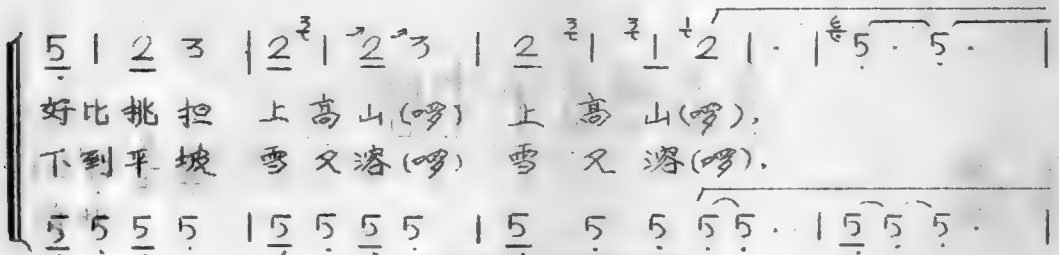 5 1 2 3 | 2 3 1 2 3 | 2 3 1 3 1 1 2 1 · | 6 5 · 5 · |
好比挑担 上高山(啰) 上高山(啰),
下到平坡 雪又溶(啰) 雪又溶(啰).
5 5 5 5 | 5 5 5 5 | 5 5 5 5 5 · | 5 5 5 · |